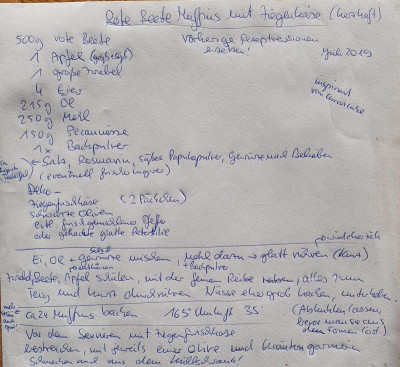 Rote Beete Muffins mit Ziegenkäse (herzhaft)
500g rote Beete
vorherige Rezeptversionen
ersetzen!
Juli 2019
1 Apfel
1 große Zwiebel
4 Eier
inspiriert
vom
215g Öl
250g Mehl
150g Pecannüsse
1x Backpulver
← Salz, Rosmarin, süßes Paprikapulver, Gewürze nach Belieben
(eventuell frischer Ingwer)
Deko -
Ziegenfrischkäse (2 Päckchen)
schwarze Oliven
frisch gemahlener Pfeffer
oder gehackte glatte Petersilie
Ei, Öl + Gewürze mischen, Mehl dazu → glatt rühren (kurz)
+ Backpulver
Zwiebel, Beete, Apfel schälen, mit der feinen Reibe reiben, alles zum
Teig und kurz durchrühren Nüsse eher grob hacken, unterheben
ca 24 Muffins backen 165° Umluft 35'
(Abkühlen lassen,
bevor man sie aus
den Formen löst)
Vor dem Servieren mit Ziegenfrischkäse
bestreichen, mit jeweils einer Olive und Kräutern garnieren
Schmecken auch aus dem Kühlschrank!